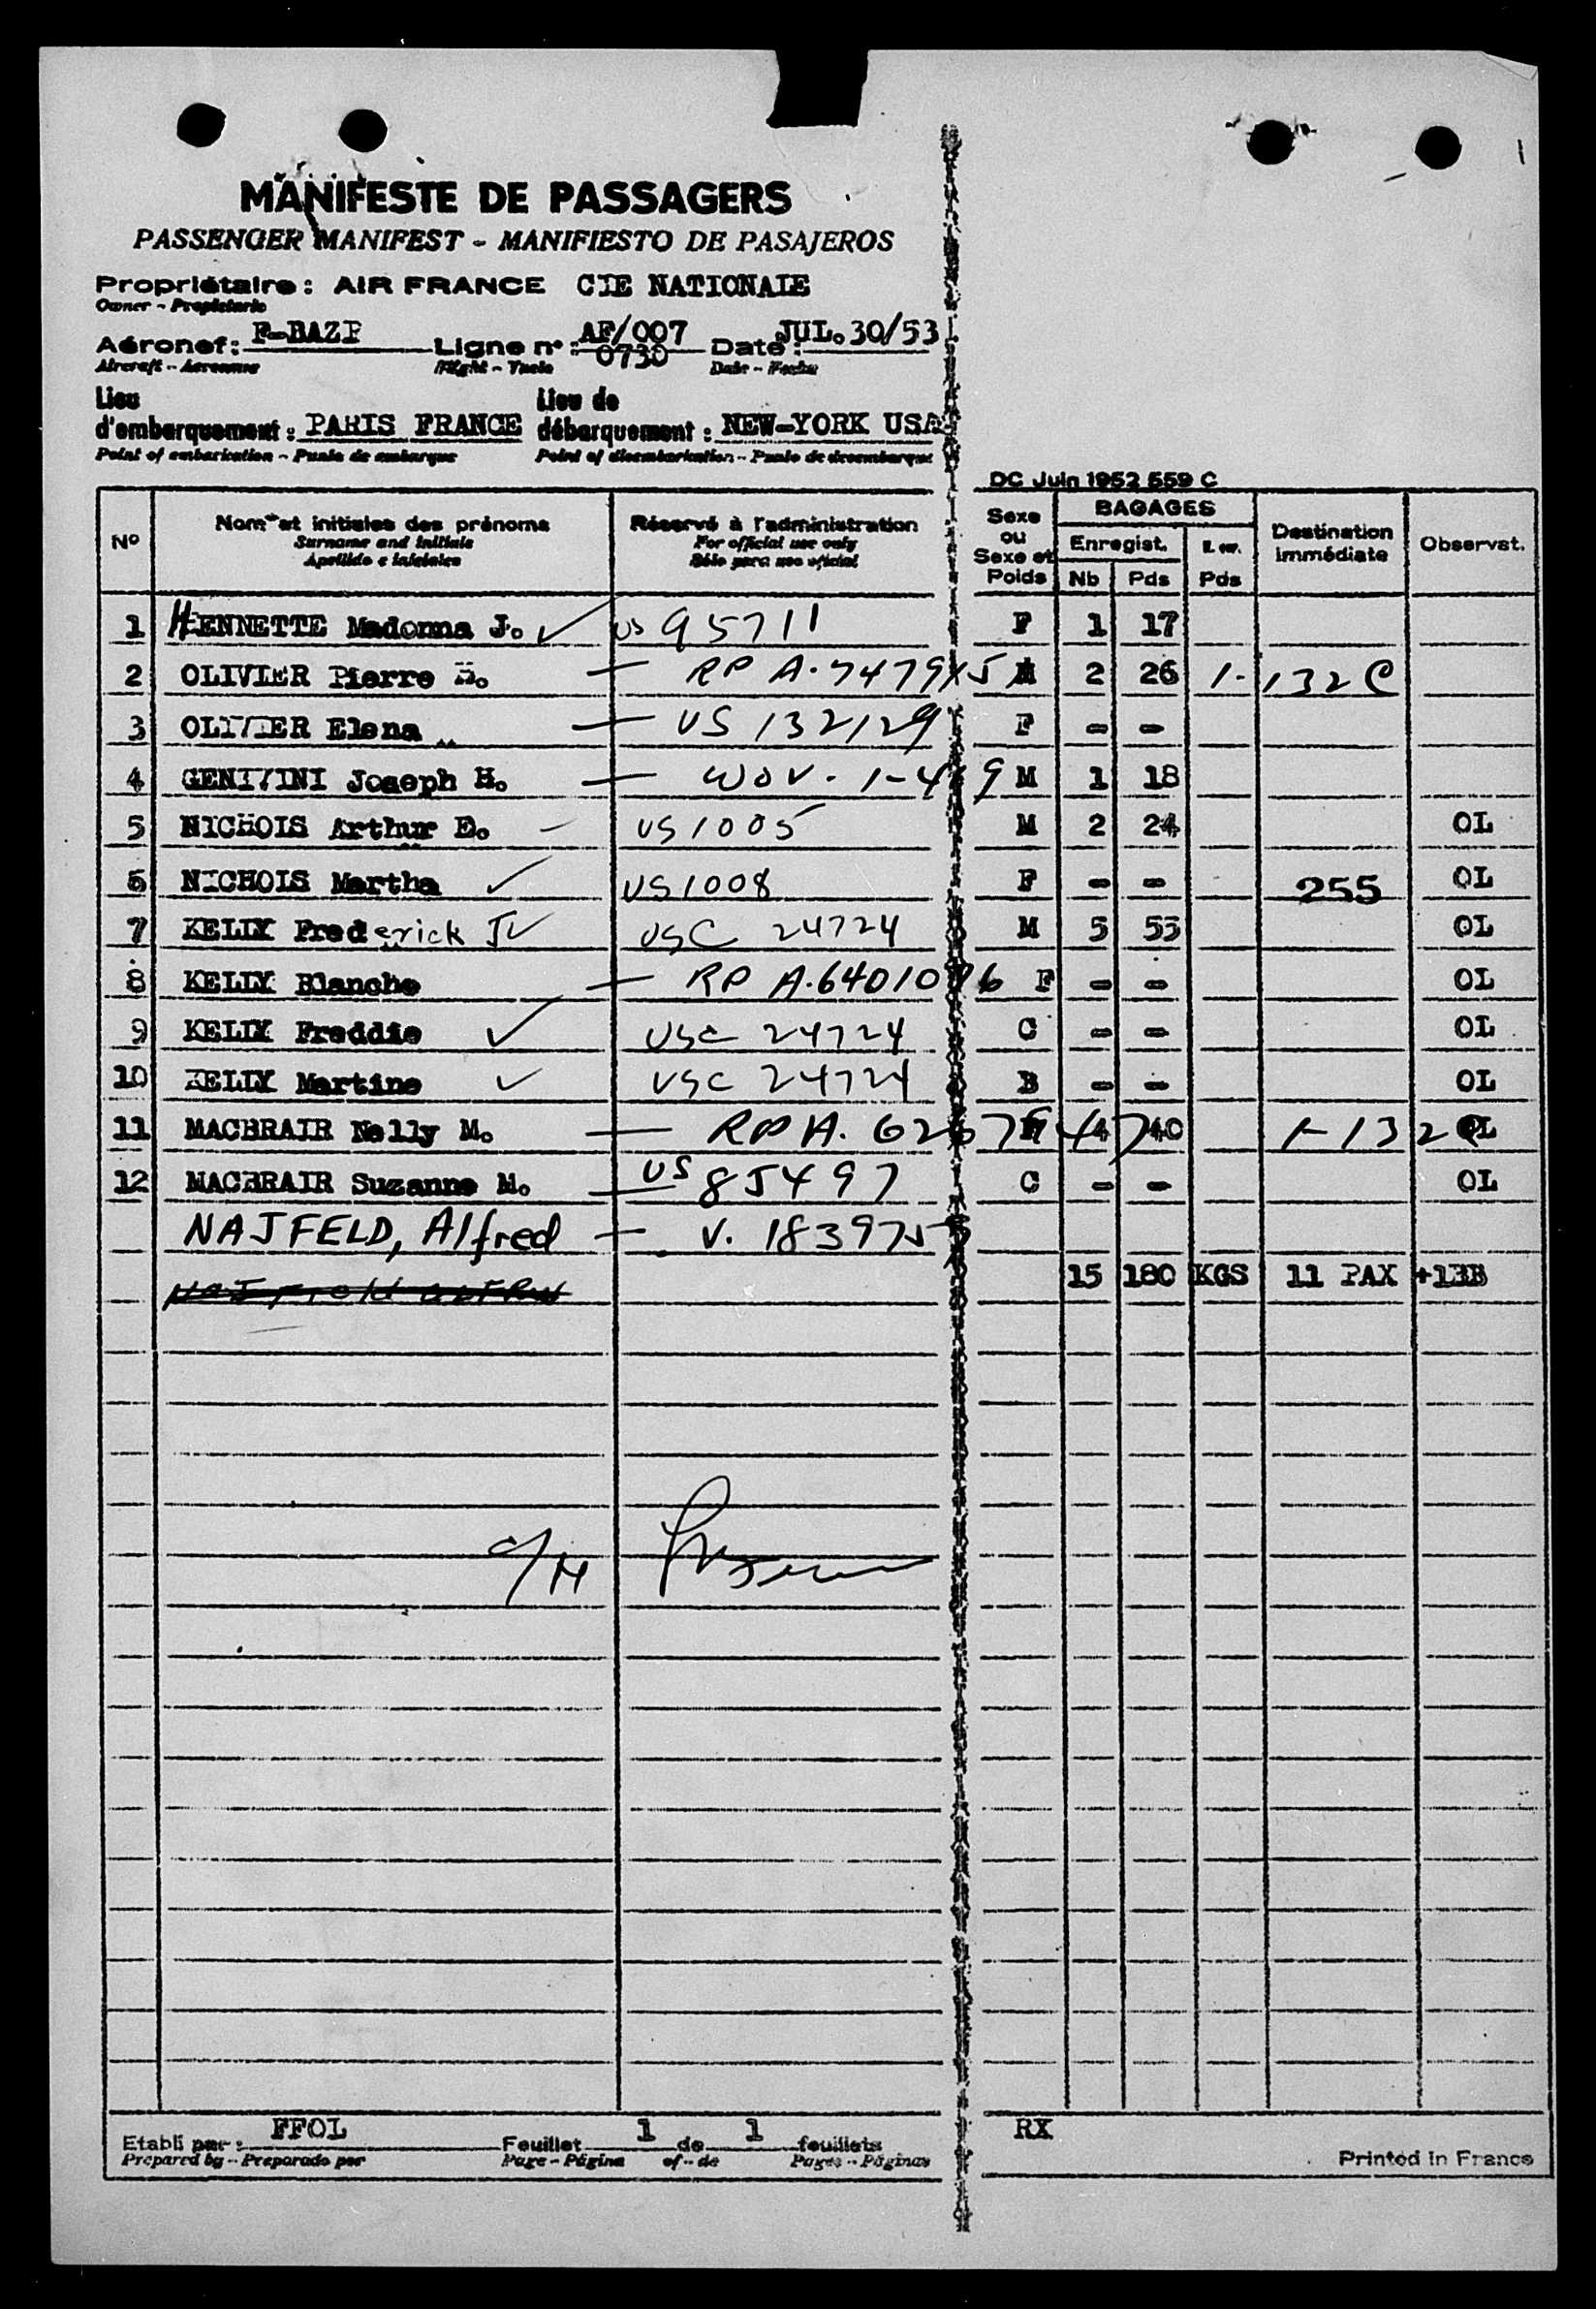 MANIFESTE DE PASSAGERS
PASSENGER MANIFEST - MANIFIESTO DE PASAJEROS
Propriétaire : AIR FRANCE CIE NATIONALE
Owner - Propietario
Aéronef : F-BAZP Ligne n° : AF/007 0730 Date : JUL. 30/53
Aircraft - Aeronave Flight - Date - Fecha
Lieu d'embarquement : PARIS FRANCE Lieu de débarquement : NEW-YORK USA
Point of embarkation - Punto de embarque Point of disembarkation - Punto de desembarque
DC Juin 1952 559 C
N° Nom et initiales des prénoms Réservé à l'administration Sexe ou Sexe et Poids BAGAGES Destination immédiate Observat.
Surname and initials For official use only Enregist.
Apellido e iniciales Sólo para uso oficial Nb Pds Pds
1 HENNETTE Madonna J. ✓ US 95711 F 1 17
2 OLIVIER Pierre H. — RP A.7479 M 2 26 1- 132 C
3 OLIVIER Elena — US 132129 F - -
4 GENIVINI Joseph H. — 1-4 9 M 1 18
5 NICHOLS Arthur E. — US 1005 M 2 24 OL
6 NICHOLS Martha ✓ US 1008 F - - 255 OL
7 KELLY Frederick J ✓ USC 24724 M 5 55 OL
8 KELLY Blanche — RP A.64010 6 F - - OL
9 KELLY Freddie ✓ USC 24724 C - - OL
10 KELLY Martine ✓ USC 24724 B - - OL
11 MACBRAIR Nelly M. — RP A. 4 40 1-132 OL
12 MACBRAIR Suzanne M. — US 85497 C - - OL
NAJFELD, Alfred — V. 183975
15 180 KGS 11 PAX +1BB
Etabli par : FFOL Feuillet 1 de 1 feuillets RX
Prepared by - Preparado por Page - Página of - de Pages - Páginas
Printed in France